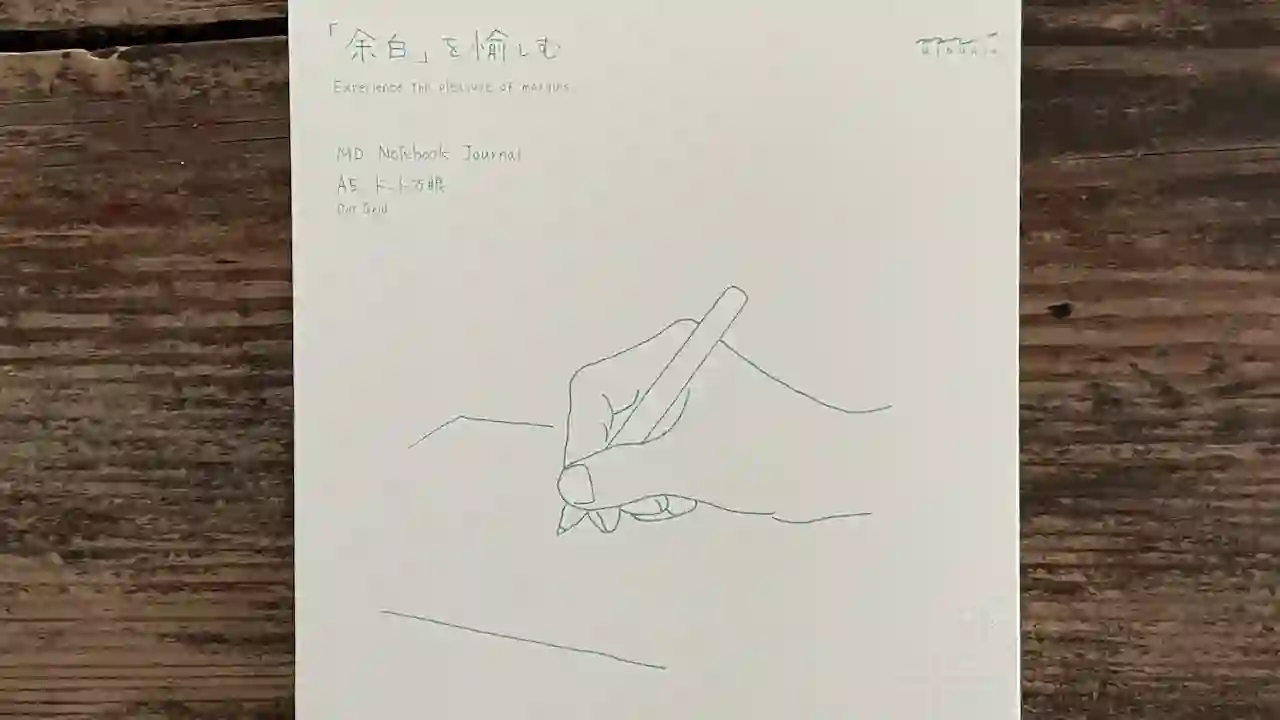 「余白」を愉しむ
Experience the pleasure of margins.
MD Notebook Journal
A5 ドット方眼
Dot Grid